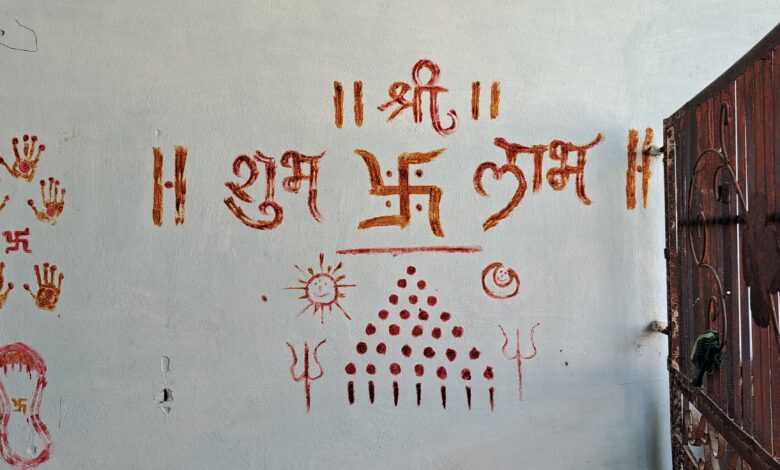 ॥ श्री ॥
॥ शुभ 卐 लाभ ॥